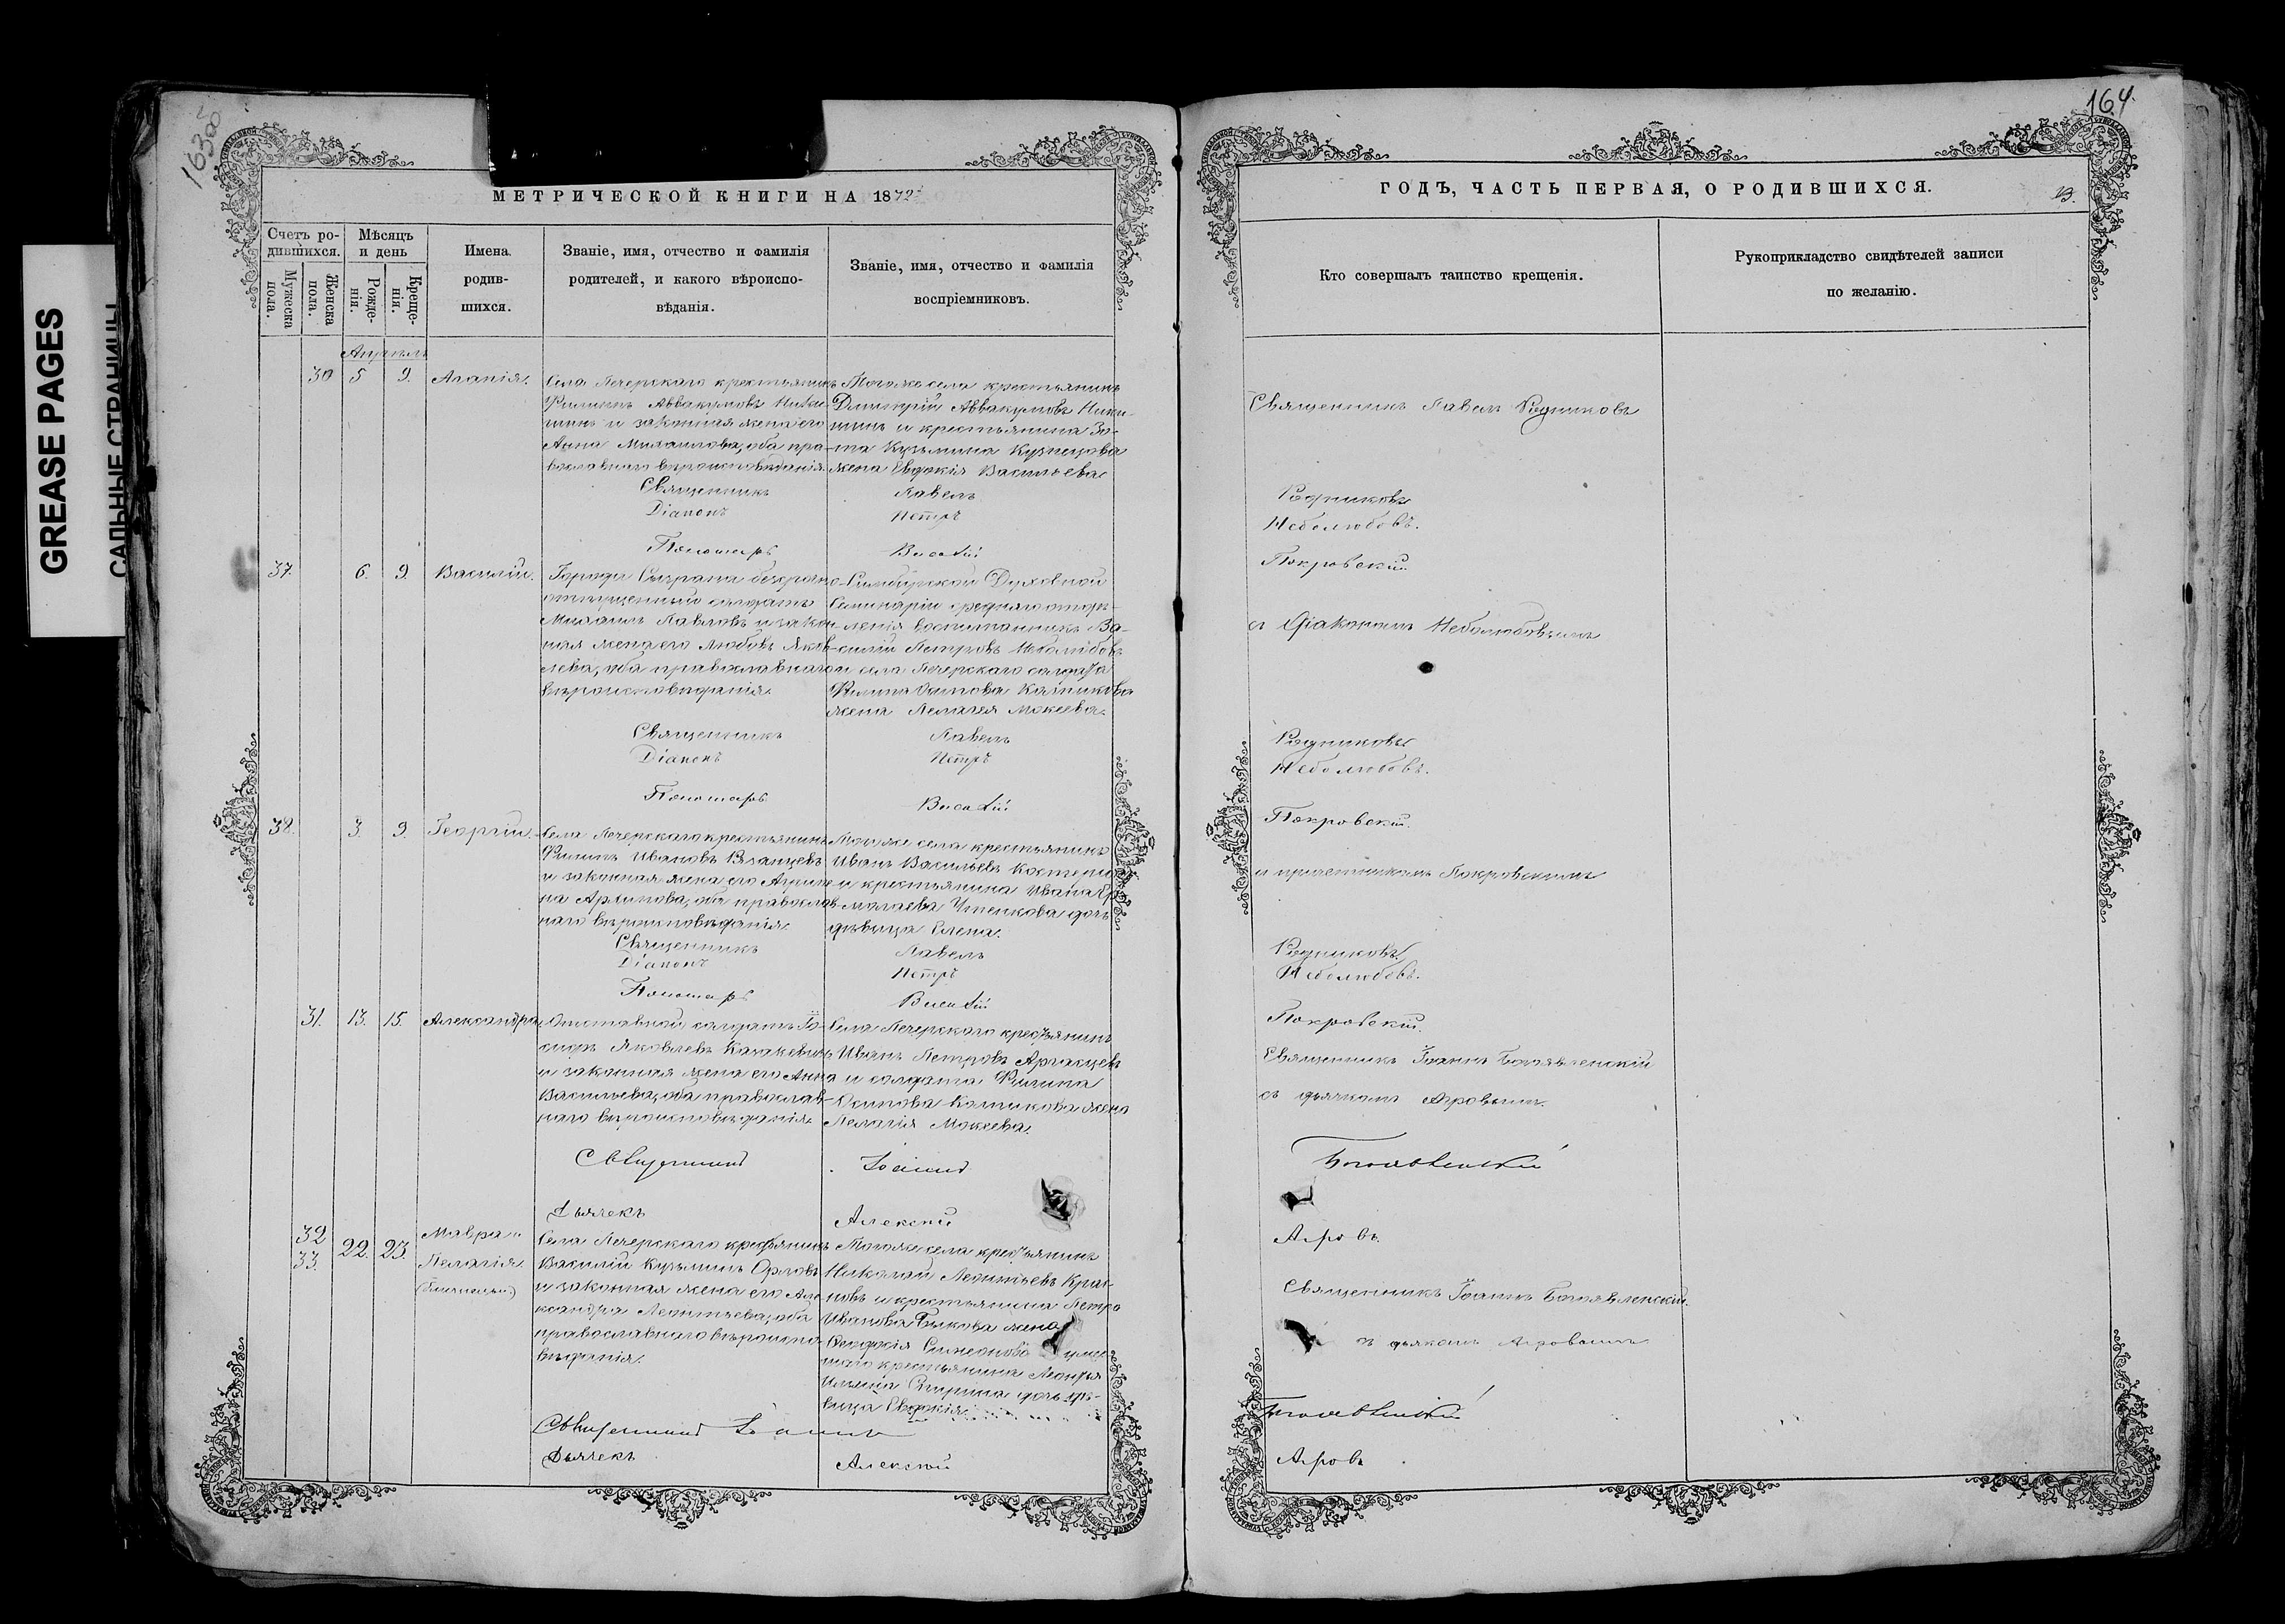 GREASE PAGES
САЛЬНЫЕ СТРАНИЦЫ
МЕТРИЧЕСКОЙ КНИГИ НА 1872
Счетъ ро-
дившихся.
Мужеска пола.
Женска пола.
Мѣсяцъ
и день
Рожде-
нія.
Креще-
нія.
Имена
родив-
шихся.
Званіе, имя, отчество и фамилія
родителей, и какого вѣроиспо-
вѣданія.
Званіе, имя, отчество и фамилія
воспріемниковъ.
Апрѣль
30 5 9. Агапія.
Села Печерскаго крестьянинъ
Филиппъ Аввакумовъ Ники-
шинъ и законная жена его
Анна Михаилова, оба пра-
вославнаго вѣроисповѣданія.
Тогоже села крестьянинъ
Дмитрій Аввакумовъ Ники-
шинъ и крестьянина Зо-
та Кузьмина Кузнецова
жена Евдокія Васильева
Священникъ Павелъ
Діаконъ Петръ
Пономарь
37. 6. 9. Василій.
Города Сызрана безсрочно-
отпущенный солдатъ
Михаилъ Павловъ и закон-
ная жена его Любовь Яков-
лева, оба православнаго
вѣроисповѣданія.
Симбирской Духовной
Семинаріи средняго отдѣ-
ленія воспитанникъ Ва-
силій Петровъ Неболюбовъ
и села Печерскаго солдата
Филиппа Осипова Калпикова
жена Пелагея Мокеева.
Священникъ Павелъ
Діаконъ Петръ
Пономарь
38. 3. 9 Георгій.
Села Печерскаго крестьянинъ
Филиппъ Ивановъ Рязанцевъ
и законная жена его Агрипи-
на Архипова, оба православ-
наго вѣроисповѣданія.
Тогоже села крестьянинъ
Иванъ Васильевъ Костерин
и крестьянина Ивана Ер-
молаева дочь
дѣвица Елена.
Священникъ Павелъ
Діаконъ Петръ
Пономарь
31. 13. 15. Александра.
Отставной солдатъ Іо-
сифъ Яковлевъ Казакевичъ
и законная жена его Анна
Васильева, оба православ-
наго вѣроисповѣданія.
Села Печерскаго крестьянинъ
Иванъ Петровъ
и солдата Филипа
Осипова Колпикова жена
Пелагія Мокеева.
Священникъ Іоаннъ
Дьячекъ Алексій
32 33. 22. 23. Мавра и
Пелагія.
(близнецы)
Села Печерскаго крестьянинъ
Василій Кузьминъ Орловъ
и законная жена его Але-
ксандра Леонтьева, оба
православнаго вѣроиспо-
вѣданія.
Тогоже села крестьянинъ
Николай Леонтьевъ Крас-
новъ и крестьянина Петра
Иванова Быкова жена
Феодосія Симеонова
крестьянина
Ильина дочь дѣ-
вица Евдокія.
Священникъ Іоаннъ
Дьячекъ Алексѣй
164.
ГОДЪ, ЧАСТЬ ПЕРВАЯ, О РОДИВШИХСЯ.
Кто совершалъ таинство крещенія.
Рукоприкладство свидѣтелей записи
по желанію.
Священникъ Павелъ Родниковъ
Родниковъ
Неболюбовъ.
Покровскій.
съ Діакономъ Неболюбовымъ
Родниковъ
Неболюбовъ.
Покровскій.
и причетникомъ Покровскимъ
Родниковъ
Неболюбовъ.
Покровскій.
Священникъ Іоаннъ Богоявленскій
съ дьячкомъ Агровымъ.
Богоявленскій
Агровъ.
Священникъ Іоаннъ Богоявленскій.
съ дьякомъ Агровымъ
Богоявленскій
Агровъ